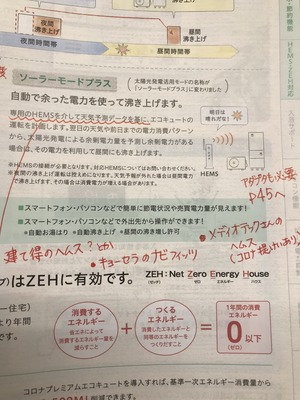 夜間
沸き上げ
昼間
沸き上げ
夜間時間帯
昼間時間帯
ソーラーモードプラス
太陽光発電活用モードの名称が
「ソーラーモードプラス」に変わりました
自動で余った電力を使って沸き上げます。
専用のHEMSを介して天気予測データを基に、エコキュートの
運転を計画します。翌日の天気や前日までの電力消費パターン
から、太陽光発電による余剰電力量を予測し、余剰電力がある
場合は、その電力を利用して昼間にも沸き上げます。
明日は
晴れだな!
HEMS
※HEMSの接続が必要となります。対応HEMSについてはお問い合わせください。
※夜間の沸き上げ運転は控えめになります。天気予報が外れた場合は昼間電力
で沸き上げますが、その場合は消費電力が増える場合があります。
アダプタも必要
P45へ
■スマートフォン・パソコンなどで簡単に節電状況や売買電力量が見えます!
■スマートフォン・パソコンなどで外出先から操作ができます!
●自動お湯はり ●自動沸き上げ ●昼間の沸き増し許可
建て得のヘムス?とか
・キョーセラのナビフィッツ
・メディオテックさんの
ヘムス
(コロナ提けいあり)
はZEHに有効です。
ZEH:Net Zero Energy House
(ゼッチ) ネット ゼロ エネルギー ハウス
消費する
エネルギー
省エネによって
消費するエネルギー量を
減らすこと
つくる
エネルギー
消費したエネルギーと
同等のエネルギーを
つくりだすこと
1年間の消費
エネルギー
0以下
(ゼロ)
コロナプレミアムエコキュートを導入すれば、基準一次エネルギー消費量から
HEMS・ZEH対応